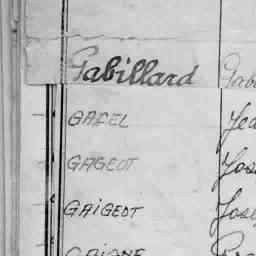 Gabillard Gab
GADEL Jea
GAGEOT Jos
GAIGEOT Jose
GAIGNE